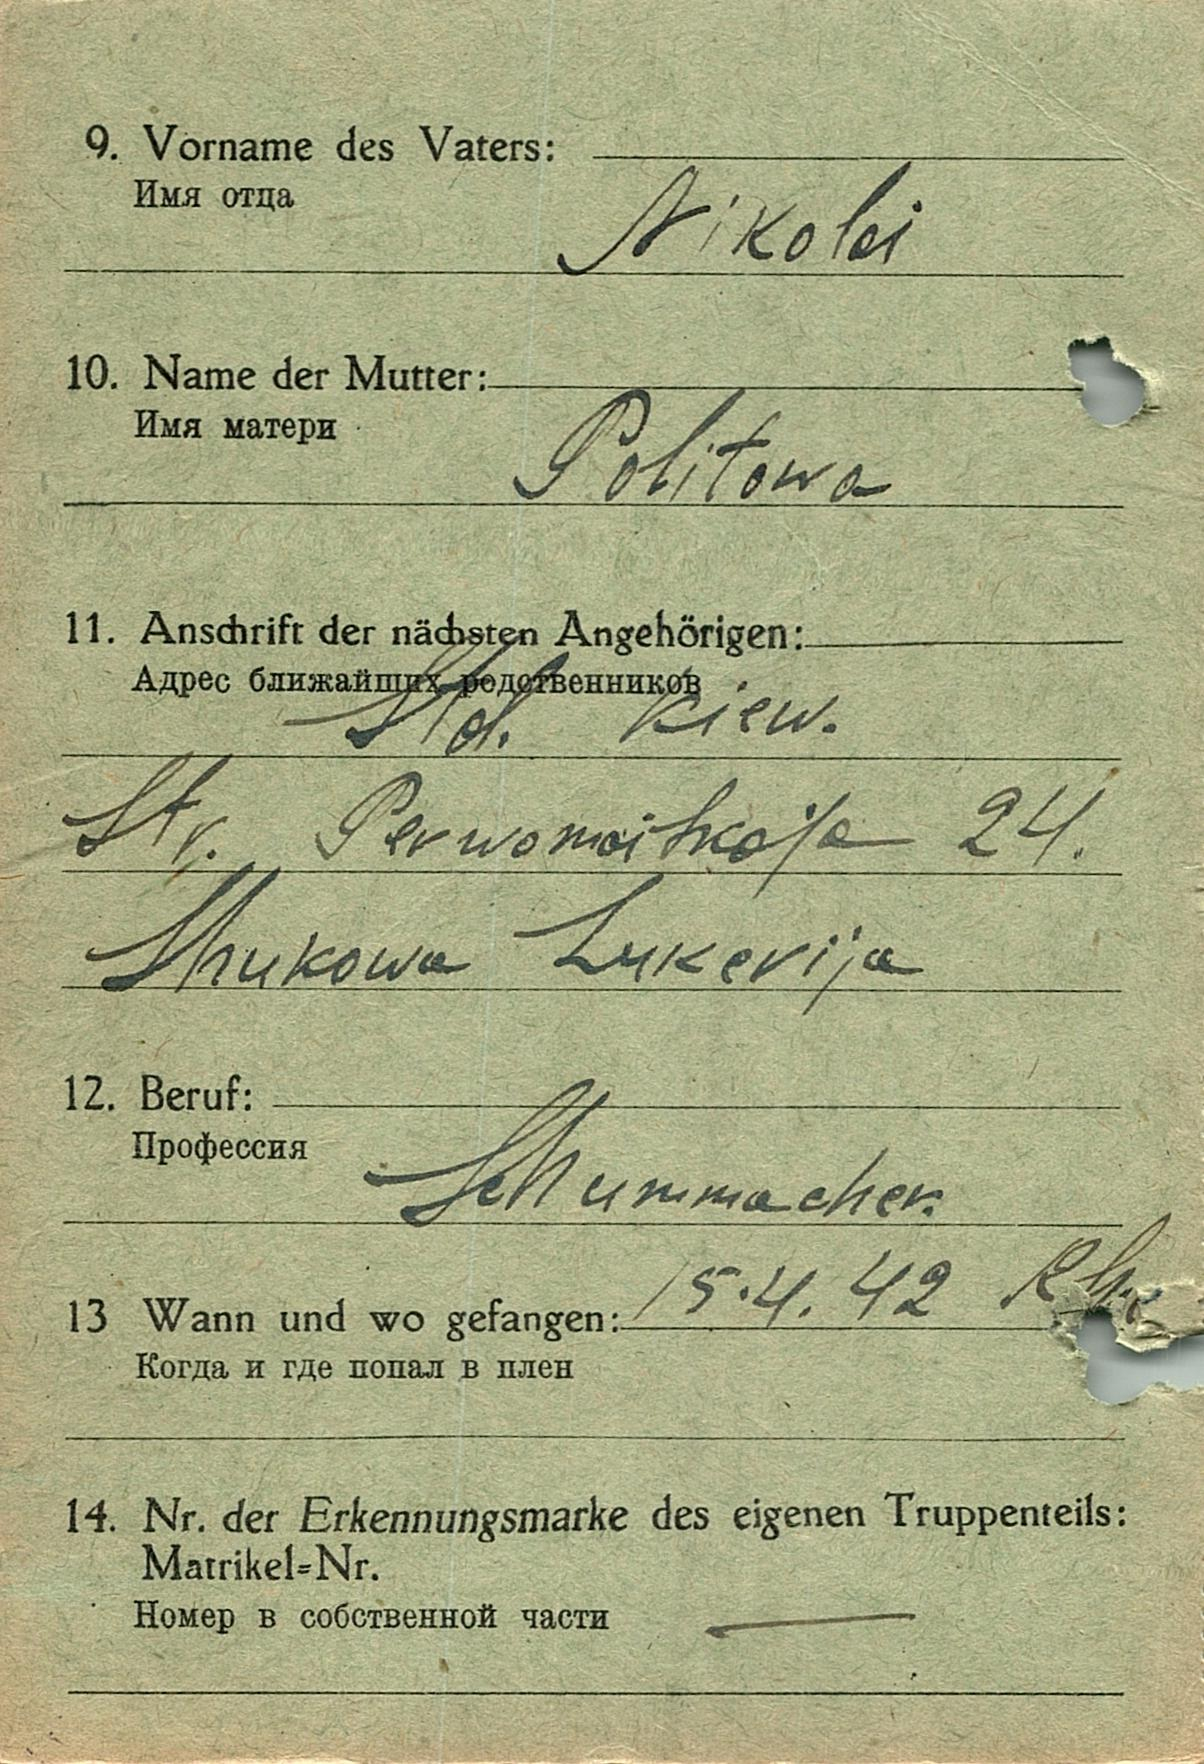 9. Vorname des Vaters:
Имя отца
Nikolei
10. Name der Mutter:
Имя матери
Politowa
11. Anschrift der nächsten Angehörigen:
Адрес ближайших родственников
Std. Kiew.
Str. Perwomaiskaja 24.
Shukowa Lukerija
12. Beruf:
Профессия
Schummacher.
13 Wann und wo gefangen: 15.4.42
Когда и где попал в плен
14. Nr. der Erkennungsmarke des eigenen Truppenteils:
Matrikel=Nr.
Номер в собственной части —